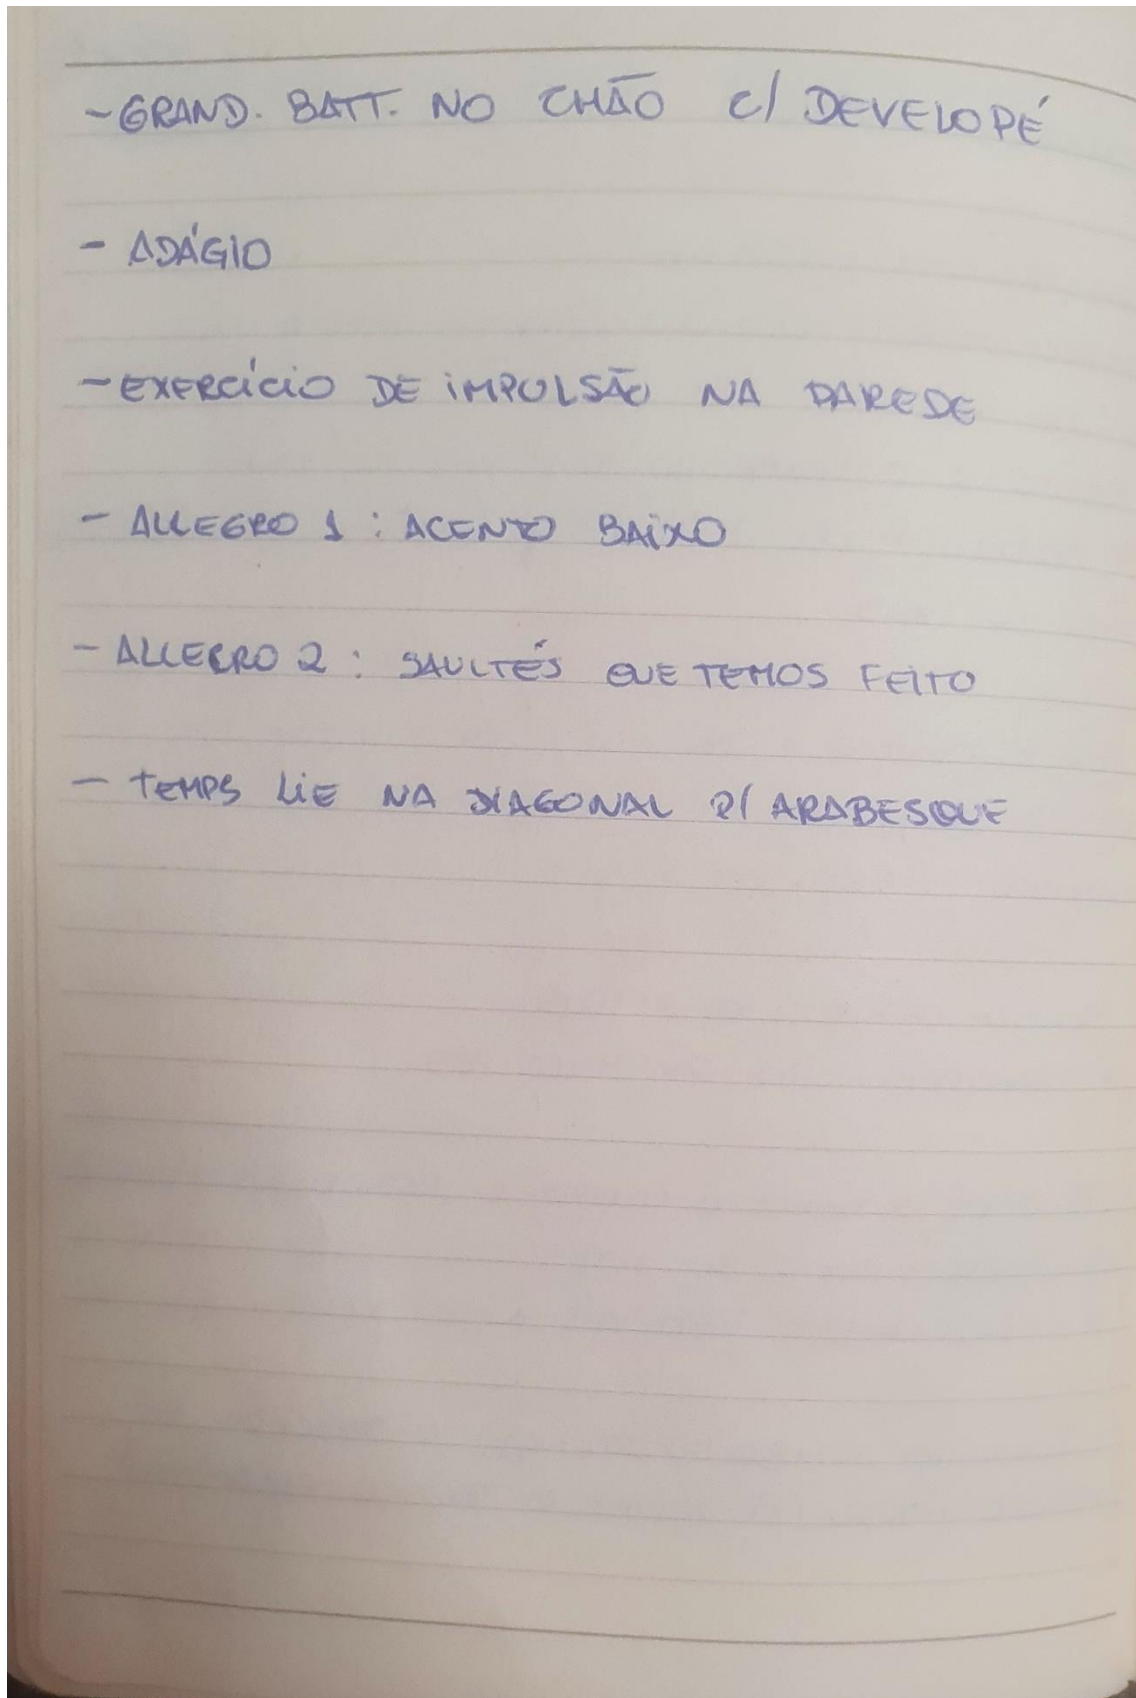 - GRAND. BATT. NO CHÃO C/ DEVELOPÉ
- ADÁGIO
- EXERCÍCIO DE IMPULSÃO NA PAREDE
- ALLEGRO 1 : ACENTO BAIXO
- ALLEGRO 2 : SAULTÉS QUE TEMOS FEITO
- TEMPS LIE NA DIAGONAL P/ ARABESQUE